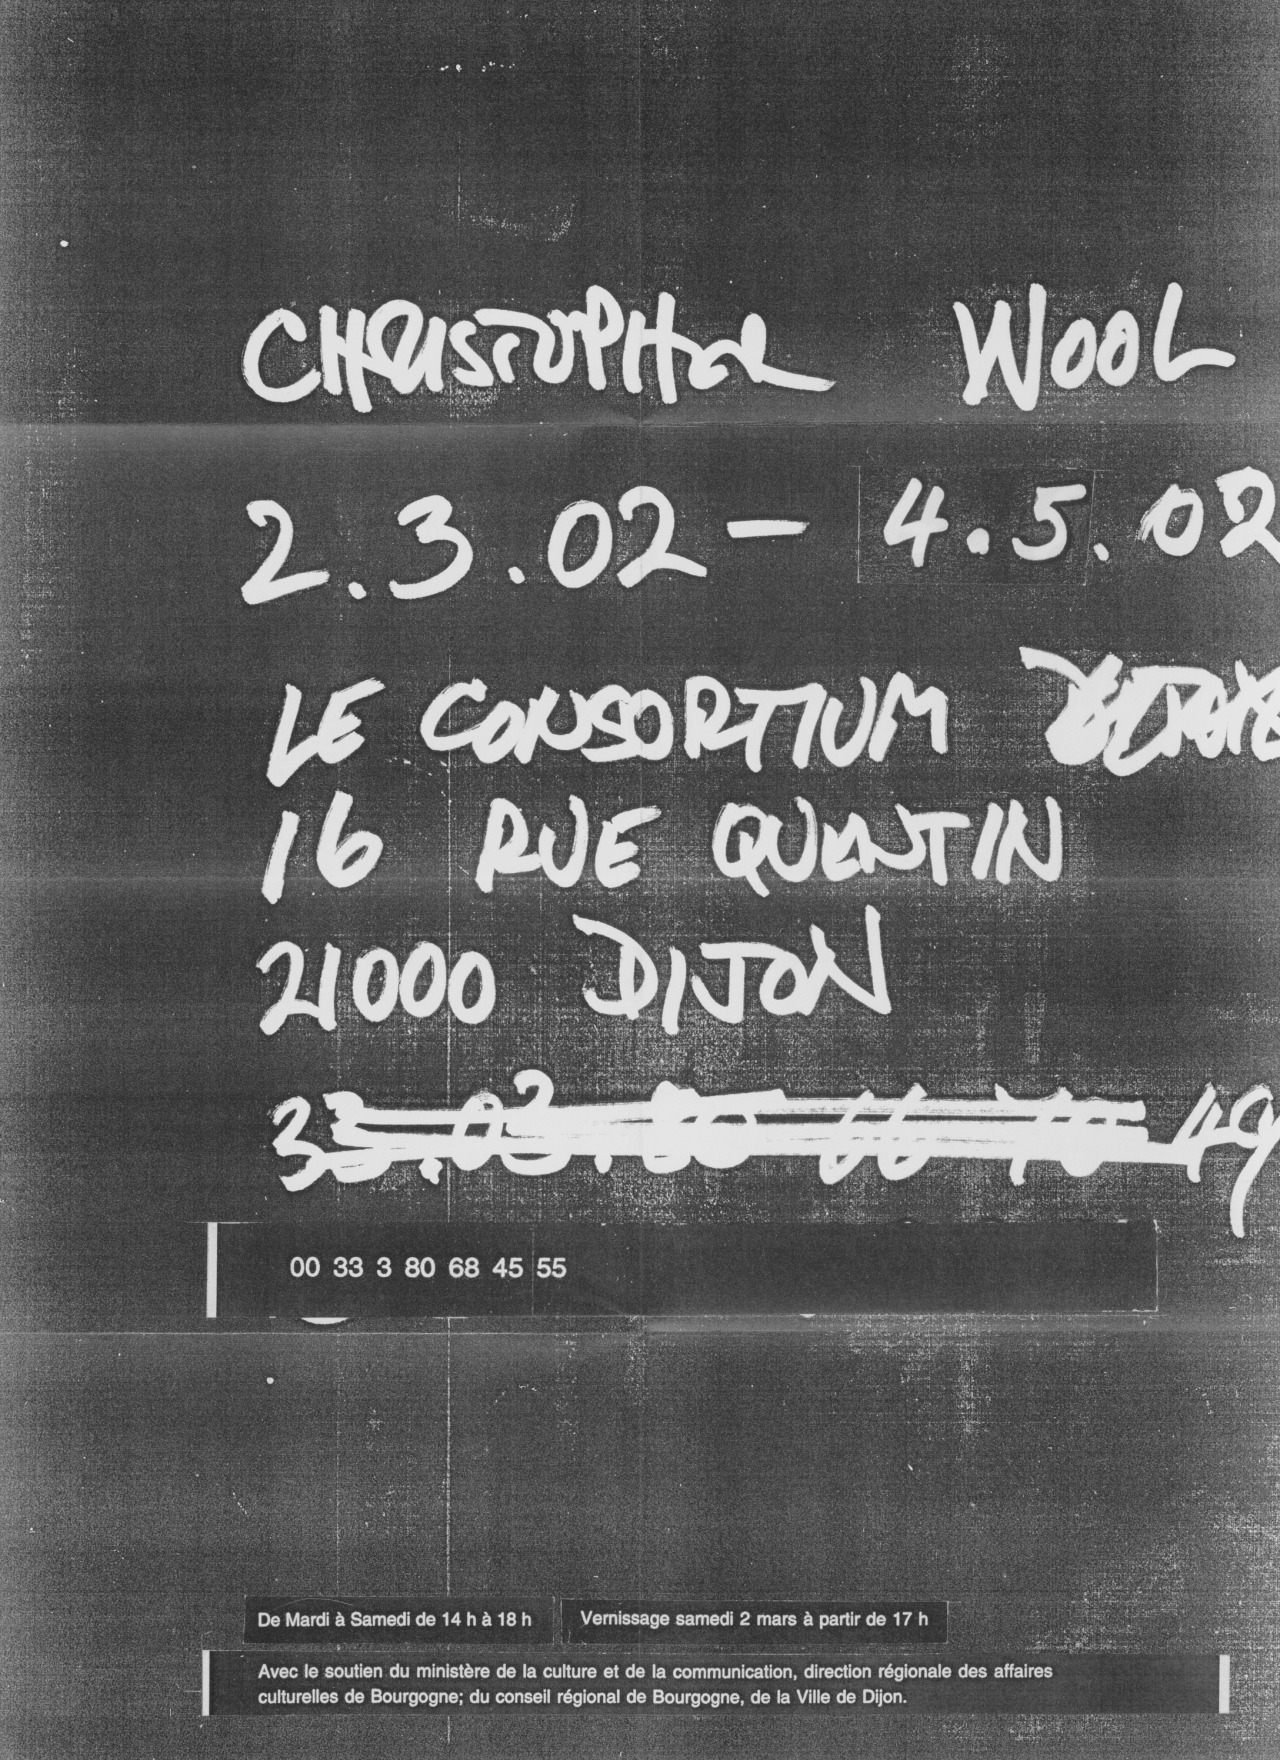 CHRISTOPHER WOOL
2.3.02 – 4.5.02
LE CONSORTIUM
16 RUE QUENTIN
21000 DIJON
33.03.80 66 70 49
00 33 3 80 68 45 55
De Mardi à Samedi de 14 h à 18 h
Vernissage samedi 2 mars à partir de 17 h
Avec le soutien du ministère de la culture et de la communication, direction régionale des affaires
culturelles de Bourgogne; du conseil régional de Bourgogne, de la Ville de Dijon.